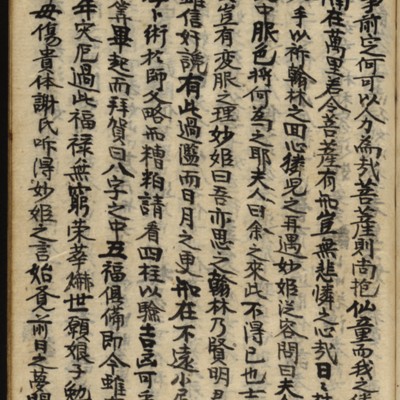 事前定何可以人力爲哉菩薩則尙抱仙童而我之
南在萬里若令菩薩有刑豈無悲憐之心哉日
手以祈翰林之回心獜児之再遇妙姬從容問曰夫人
中服色將何爲之耶夫人曰余之來此不得已也士
豈有変服之理妙姬曰吾亦思之翰林乃賢明君
雖信奸說有此過而日月之更加在不遠小
卜術於師父略而糟粕請看四柱以驗吉凶可
算畢起而拜賀曰八字之中五福俱備即今雖
年灾厄過此福祿無窮荣華爀世願娘子勉
毋傷貴体謝氏听得妙姬之言始覺前日之夢